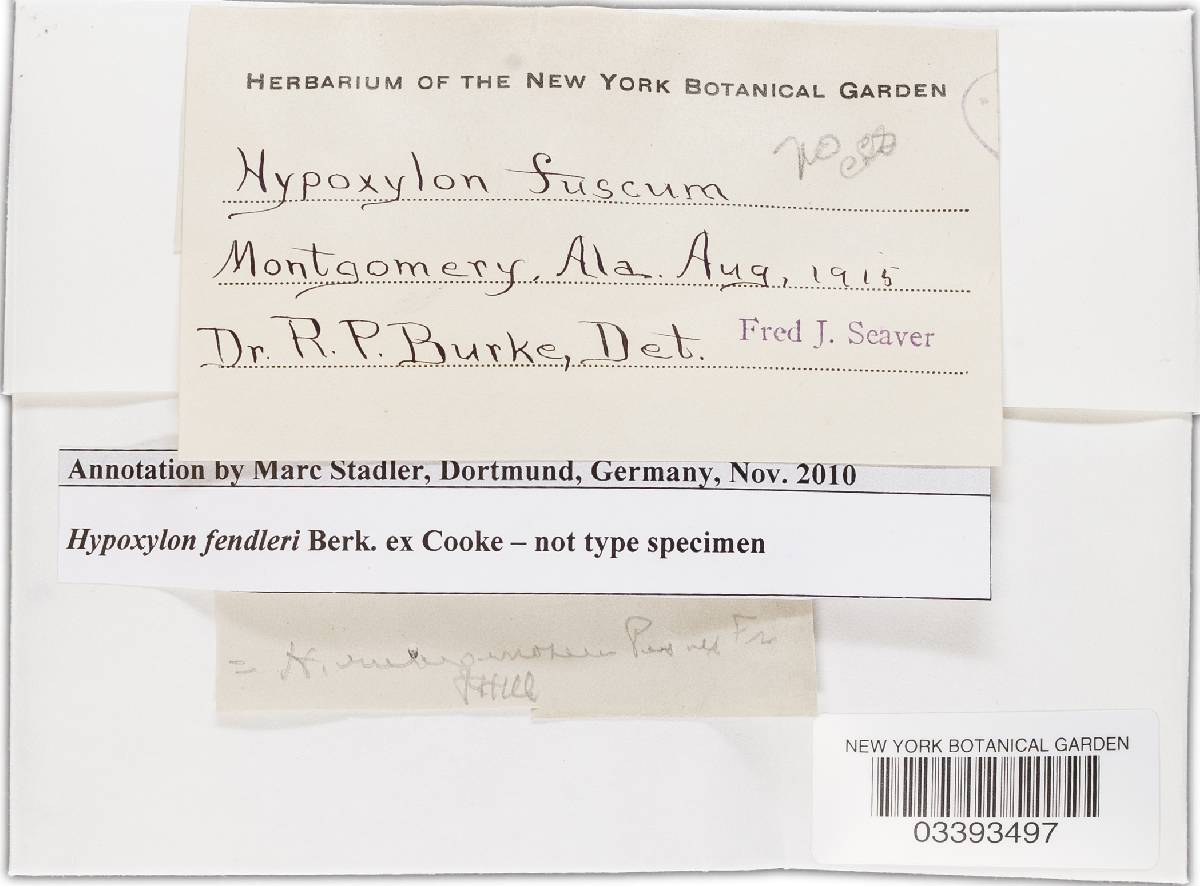 HERBARIUM OF THE NEW YORK BOTANICAL GARDEN
no
Hypoxylon fuscum
Montgomery, Ala. Aug, 1915
Dr. R. P. Burke, Det. Fred J. Seaver
Annotation by Marc Stadler, Dortmund, Germany, Nov. 2010
Hypoxylon fendleri Berk. ex Cooke – not type specimen
= H. Pers Fr
JHM
NEW YORK BOTANICAL GARDEN
03393497